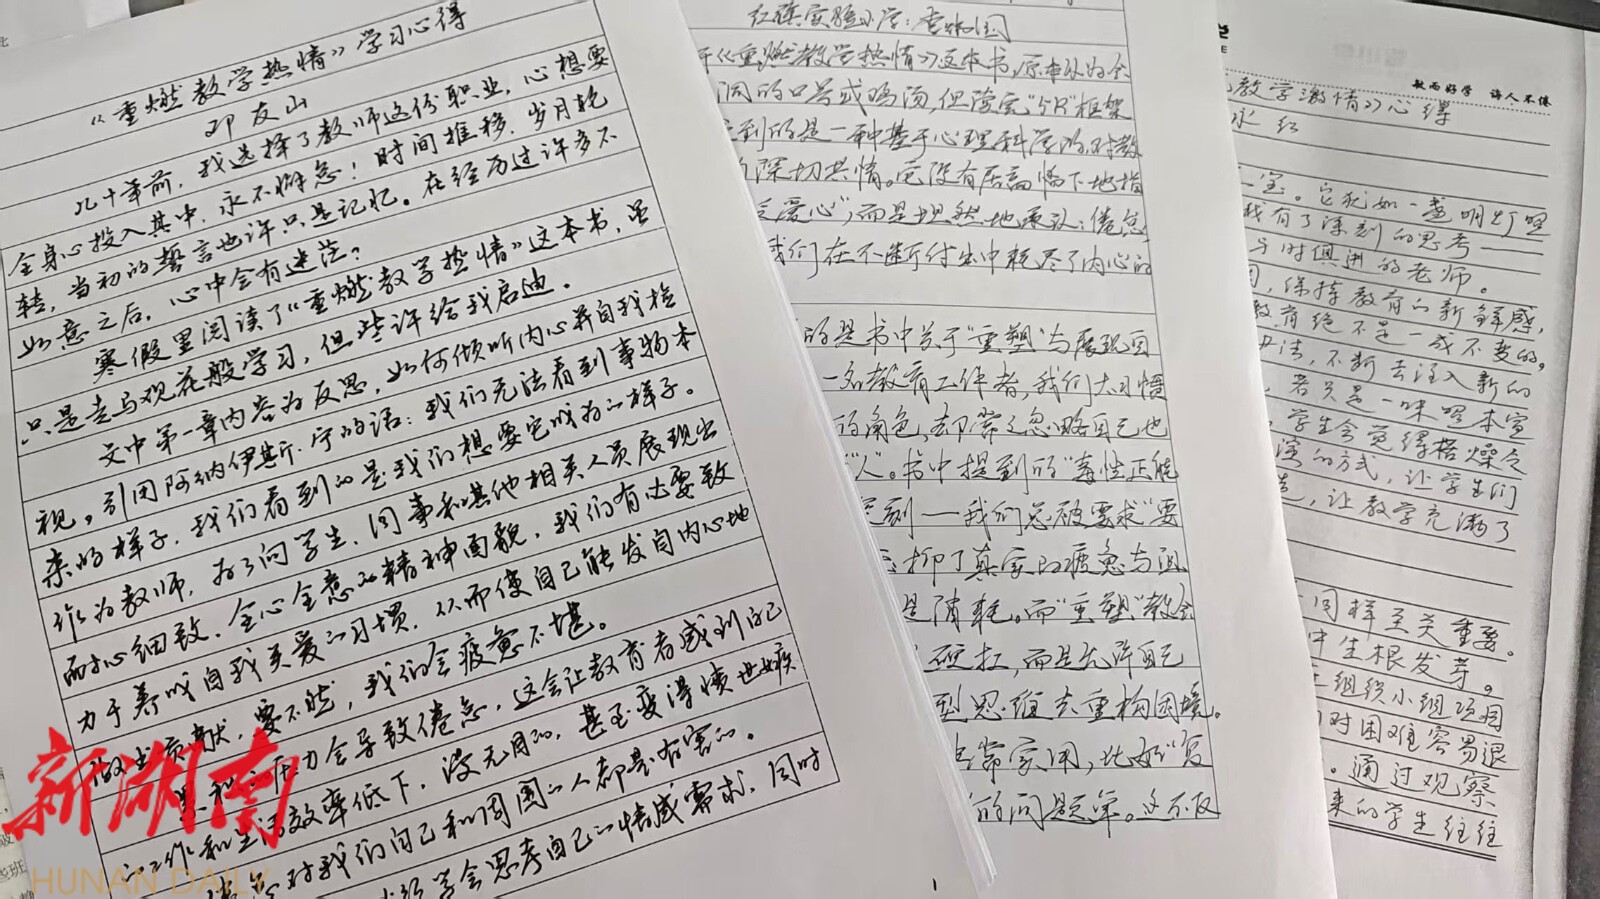 《重燃教学热情》学习心得
邓友山
几十年前，我选择了教师这份职业，心想要
全身心投入其中，永不懈怠！时间推移，岁月轮
转，当初的誓言也许只是记忆。在经历过许多不
如意之后，心中会有迷茫？
寒假里阅读了《重燃教学热情》这本书，虽
只是走马观花般学习，但些许给我启迪。
文中第一章内容为反思，如何倾听内心并自我检
视。引用阿纳伊斯·宁的话：我们无法看到事物本
来的样子，我们看到的是我们想要它成为的样子。
作为教师，为了向学生、同事和其他相关人员展现出
耐心细致、全心全意的精神面貌，我们有必要致
力于养成自我关爱的习惯，从而使自己能发自内心地
做出贡献，要不然，我们会疲惫不堪。
力会导致倦怠，这会让教育者感到自己
的工作和生活效率低下，漫无目的，甚至变得愤世嫉
对我们自己和周围的人都是有害的。
学会思考自己的情感需求，同时
红旗实验小学：
《重燃教学热情》这本书，原本以为会
洞的口号或鸡汤，但读完“5R”框架
到的是一种基于心理科学的、对教
深切共情。它没有居高临下地指
爱心”，而是坦然地承认：倦怠
我们在不断付出中耗尽了内心的
的是书中关于“重塑”与展现自
一名教育工作者，我们太习惯
的角色，却常常忽略自己也
“人”。书中提到的“毒性正能
刻——我们总被要求“要
抑了真实的疲惫与沮
是消耗。而“重塑”教会
硬扛，而是允许自己
型思维去重构困境。
常实用，比如“复
的问题单。这不仅
教而好学 诲人不倦
教学激情》心得
水红
宝。它犹如一盏明灯照
我有了深刻的思考——
与时俱进的老师。
保持教育的新鲜感，
教育绝不是一成不变的，
方法，不断去注入新的
若只是一味照本宣
学生会觉得枯燥乏
演的方式，让学生们
让教学充满了
同样至关重要。
中生根发芽。
组织小组项目
对困难容易退
。通过观察
来的学生往往
新湖南
HUNAN DAILY